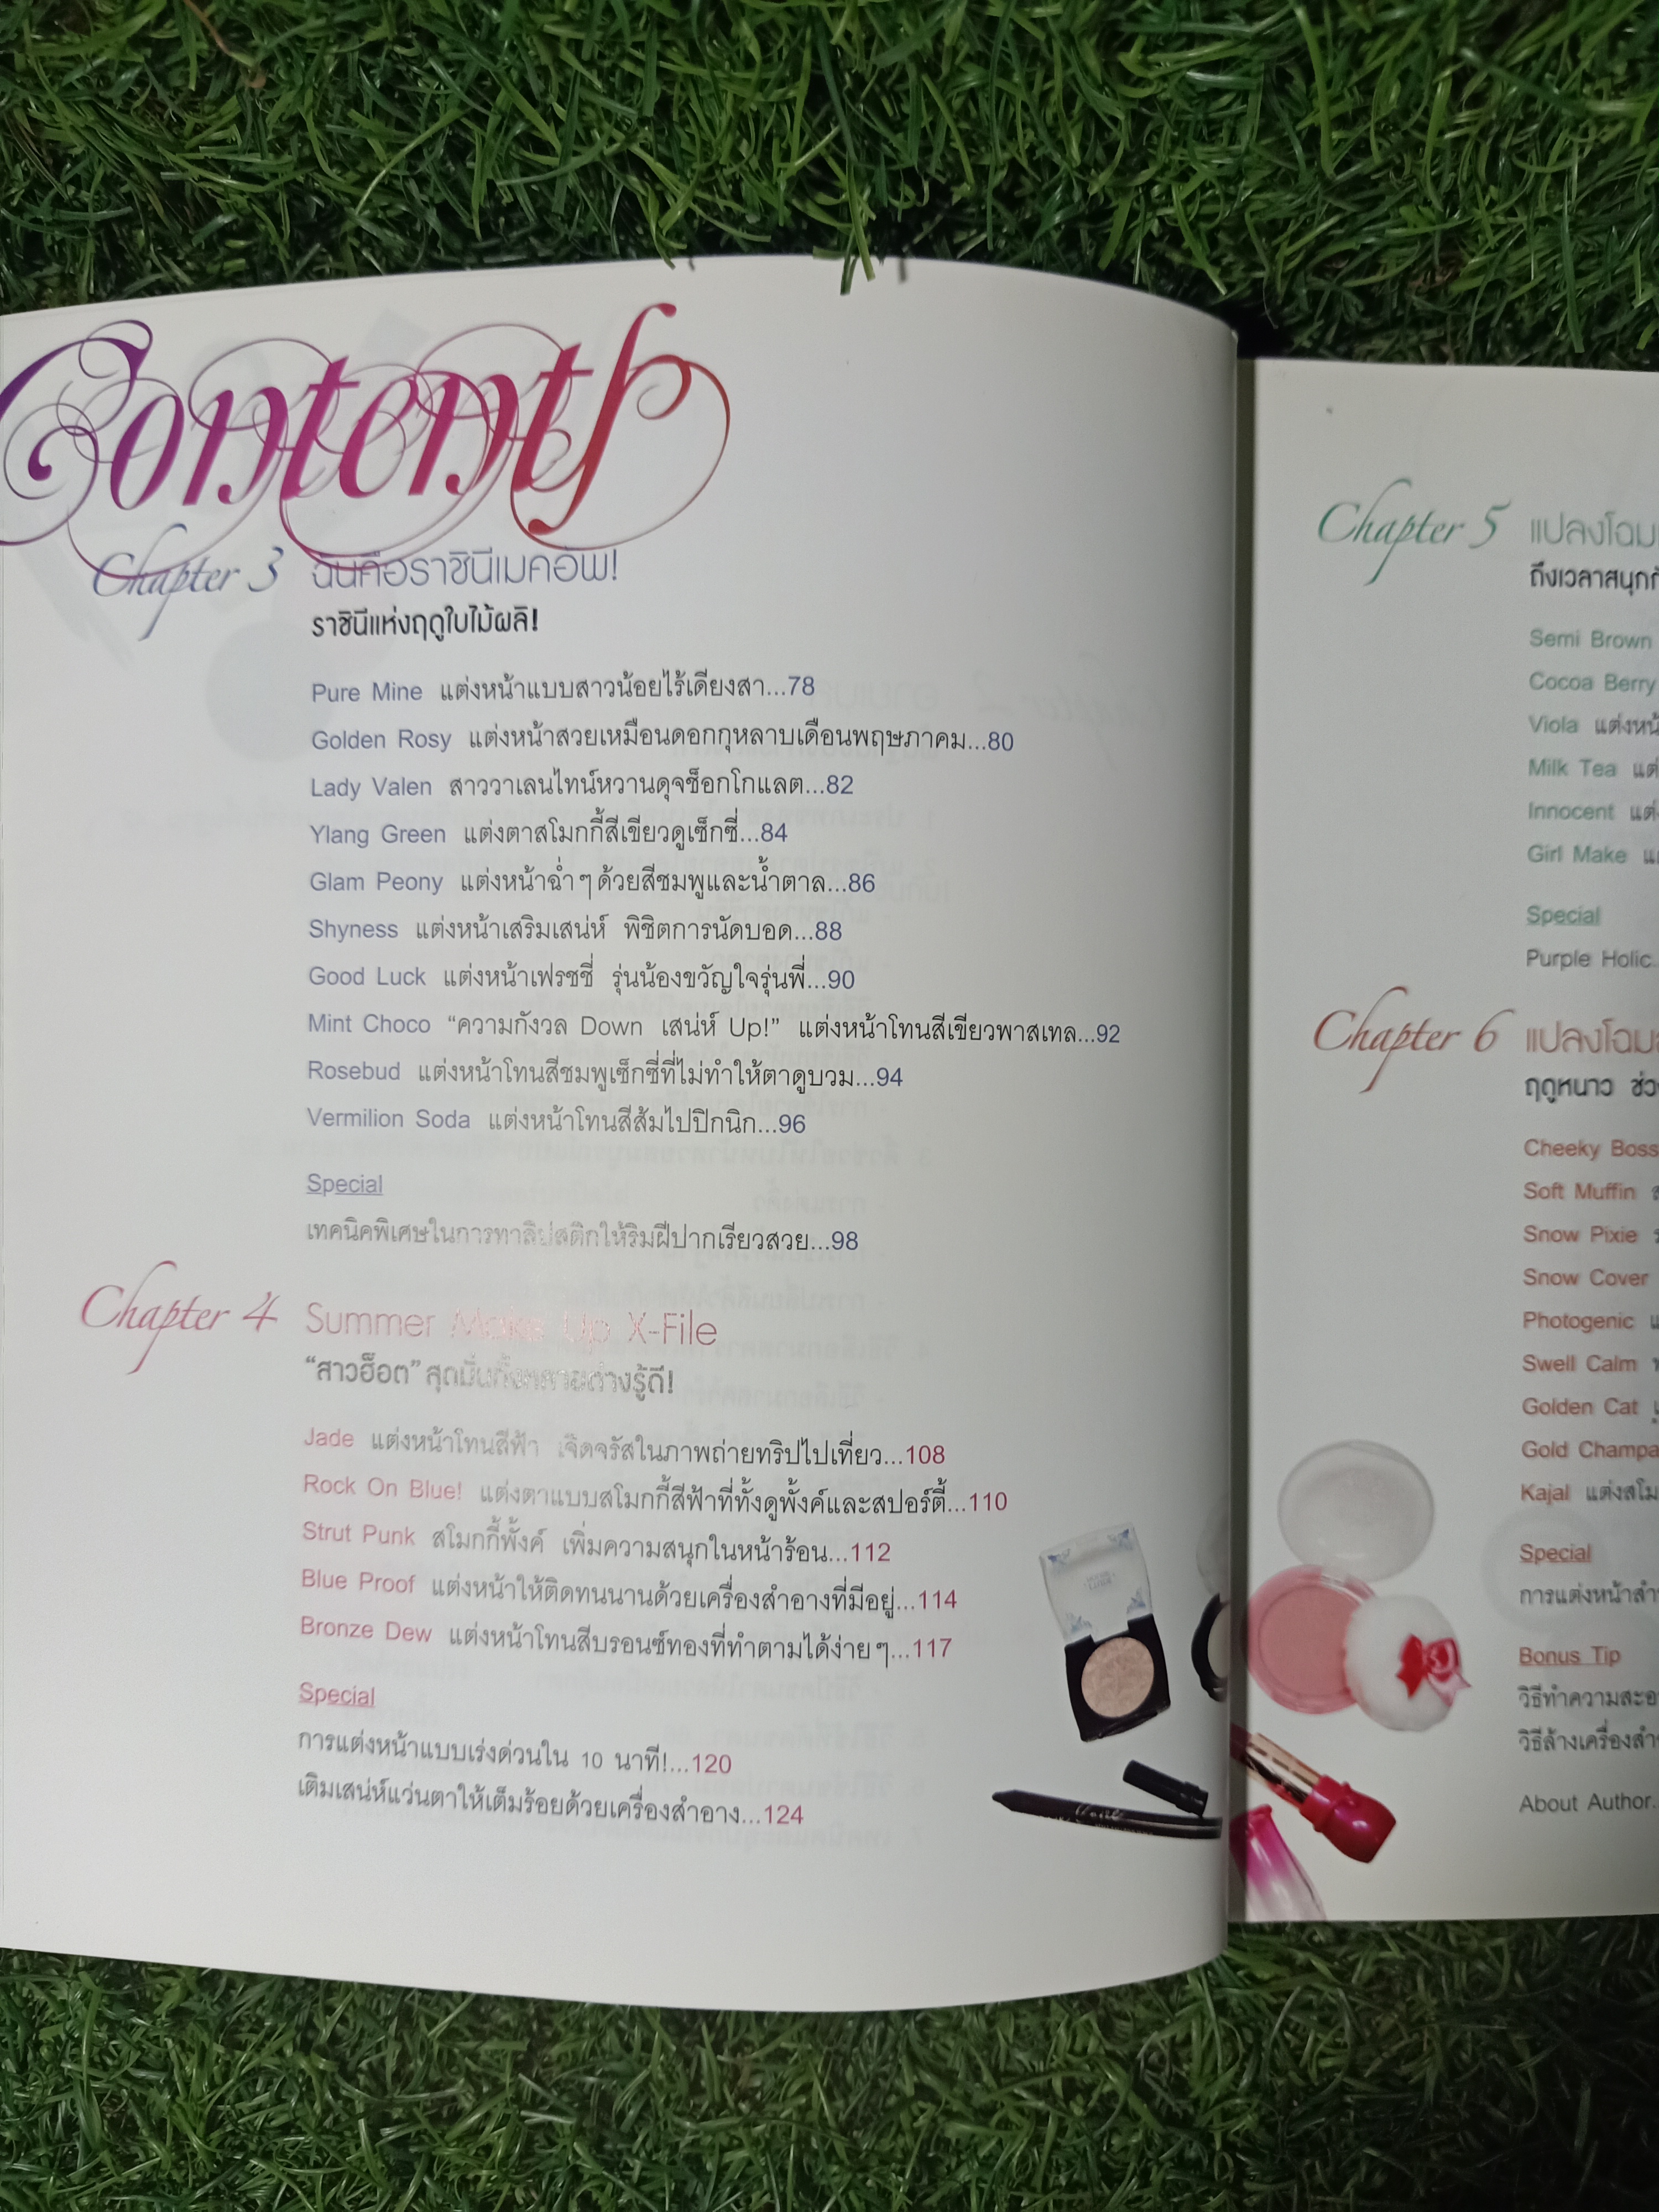 Contents
Chapter 3 ฉันคือราชินีเมคอัพ!
ราชินีแห่งฤดูใบไม้ผลิ!
Pure Mine แต่งหน้าแบบสาวน้อยไร้เดียงสา...78
Golden Rosy แต่งหน้าสวยเหมือนดอกกุหลาบเดือนพฤษภาคม...80
Lady Valen สาววาเลนไทน์หวานดุจช็อกโกแลต...82
Ylang Green แต่งตาสโมกกี้สีเขียวดูเซ็กซี่...84
Glam Peony แต่งหน้าฉ่ำๆ ด้วยสีชมพูและน้ำตาล...86
Shyness แต่งหน้าเสริมเสน่ห์ พิชิตการนัดบอด...88
Good Luck แต่งหน้าเฟรชชี่ รุ่นน้องขวัญใจรุ่นพี่...90
Mint Choco “ความกังวล Down เสน่ห์ Up!” แต่งหน้าโทนสีเขียวพาสเทล...92
Rosebud แต่งหน้าโทนสีชมพูเซ็กซี่ที่ไม่ทำให้ตาดูบวม...94
Vermilion Soda แต่งหน้าโทนสีส้มไปปิกนิก...96
Special
เทคนิคพิเศษในการทาลิปสติกให้ริมฝีปากเรียวสวย...98
Chapter 4 Summer Make Up X-File
“สาวฮ็อต” สุดมั่นทั้งหลายต่างรู้ดี!
Jade แต่งหน้าโทนสีฟ้า เจิดจรัสในภาพถ่ายทริปไปเที่ยว...108
Rock On Blue! แต่งตาแบบสโมกกี้สีฟ้าที่ทั้งดูพั้งค์และสปอร์ตี้...110
Strut Punk สโมกกี้พั้งค์ เพิ่มความสนุกในหน้าร้อน...112
Blue Proof แต่งหน้าให้ติดทนนานด้วยเครื่องสำอางที่มีอยู่...114
Bronze Dew แต่งหน้าโทนสีบรอนซ์ทองที่ทำตามได้ง่ายๆ...117
Special
การแต่งหน้าแบบเร่งด่วนใน 10 นาที!...120
เติมเสน่ห์แว่นตาให้เต็มร้อยด้วยเครื่องสำอาง...124
Chapter 5 แปลงโฉม
ถึงเวลาสนุก
Semi Brown
Cocoa Berry
Viola แต่งหน้
Milk Tea แต่
Innocent แต่
Girl Make แ
Special
Purple Holic..
Chapter 6 แปลงโฉม
ฤดูหนาว ช่ว
Cheeky Boss
Soft Muffin
Snow Pixie
Snow Cover
Photogenic
Swell Calm
Golden Cat
Gold Champa
Kajal แต่งสโม
Special
การแต่งหน้าสำ
Bonus Tip
วิธีทำความสะอ
วิธีล้างเครื่องสำ
About Author..